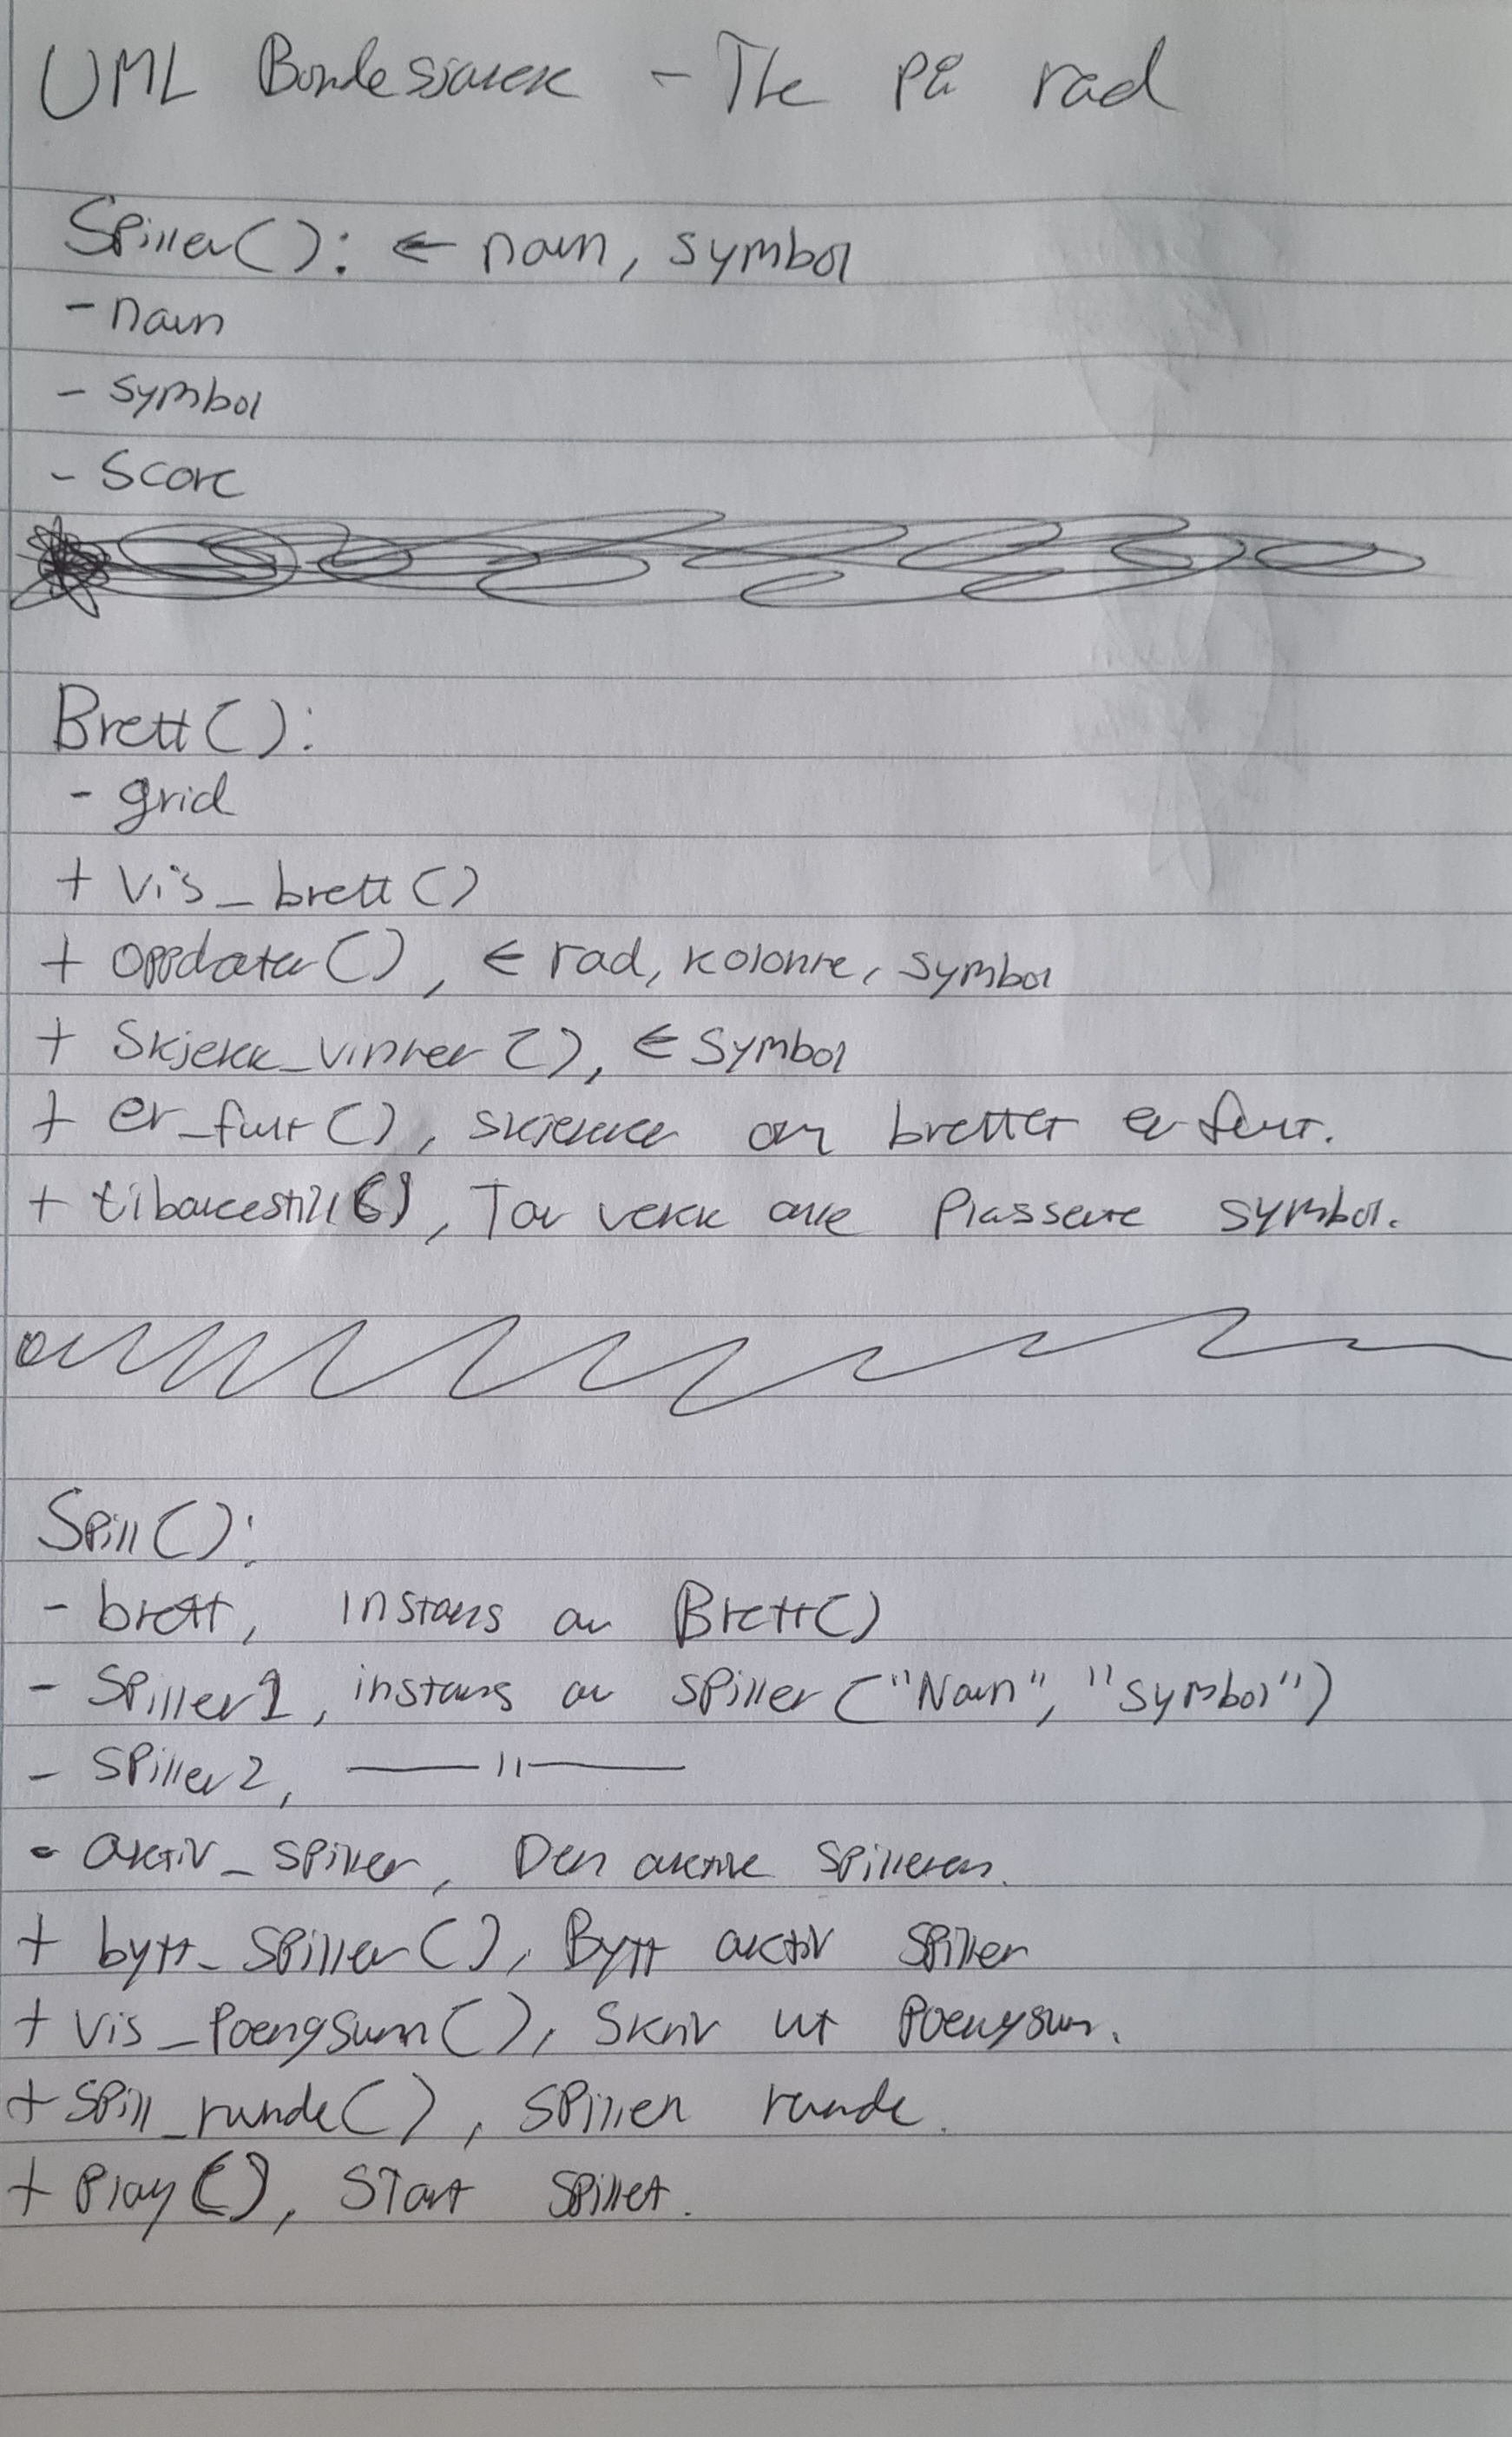 UML Bondesjakk - Tre på rad
Spiller(): ← navn, symbol
- navn
- symbol
- score
Brett():
- grid
+ vis_brett()
+ oppdater(), ← rad, kolonne, symbol
+ skjekk_vinner(), ← symbol
+ er_fullt(), skjekker om brettet er fullt.
+ tilbakestill(), Tar vekk alle plasserte symbol.
Spill():
- brett, instans av Brett()
- spiller1, instans av spiller("Navn", "symbol")
- spiller2, —— 11 ——
- aktiv_spiller, Den aktive spilleren.
+ bytt_spiller(), Bytt aktiv spiller
+ vis_poengsum(), Skriv ut poengsum.
+ spill_runde(), spill en runde.
+ Play(), Start spillet.